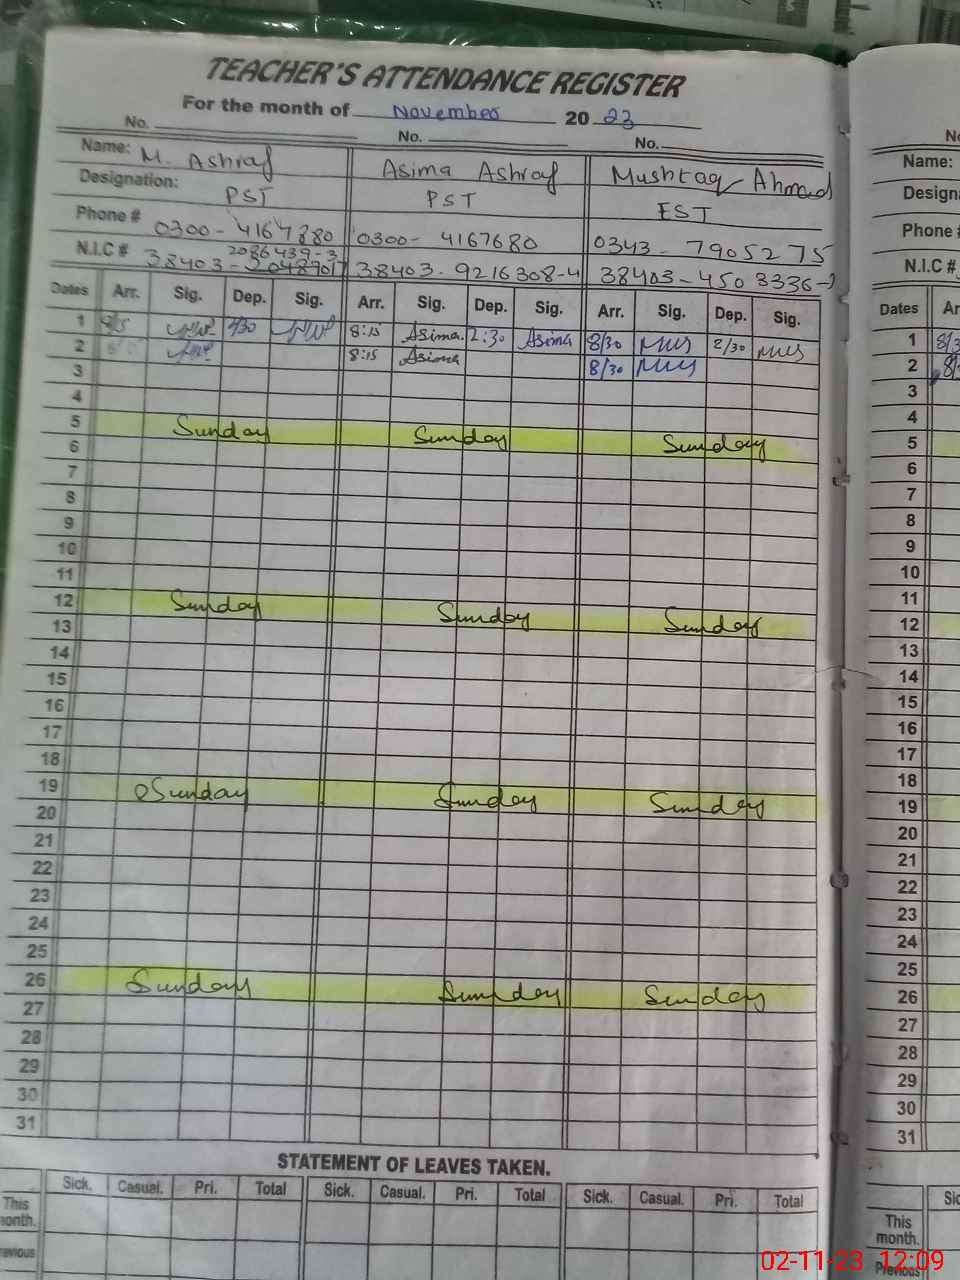 TEACHER'S ATTENDANCE REGISTER
For the month of November 20 23
No. No. No.
Name: M. Ashraf Asima Ashraf Mushtaq Ahmad
Designation: PST PST EST
Phone # 0300-4167880 0300-4167680 0343-7905275
2086439-3
N.I.C # 38403- 38403-9216308-4 38403-4503336-
Dates Arr. Sig. Dep. Sig. Arr. Sig. Dep. Sig. Arr. Sig. Dep. Sig.
1 2/30 8:15 Asima 2:30 Asima 8/30 2/30
2 8:15 Asima 8/30
3
4
5 Sunday Sunday Sunday
6
7
8
9
10
11
12 Sunday Sunday Sunday
13
14
15
16
17
18
19 Sunday Sunday Sunday
20
21
22
23
24
25
26 Sunday Sunday Sunday
27
28
29
30
31
STATEMENT OF LEAVES TAKEN.
Sick. Casual. Pri. Total Sick. Casual. Pri. Total Sick. Casual. Pri. Total
This
month.
Name:
Phone #
N.I.C #
Dates
1
2
3
4
5
6
7
8
9
10
11
12
13
14
15
16
17
18
19
20
21
22
23
24
25
26
27
28
29
30
31
This
month.
Previous
02-11-23 12:09